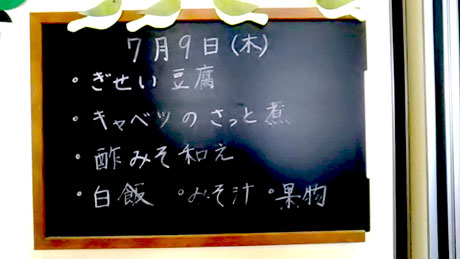 7月9日(木)
・ぎせい豆腐
・キャベツのさっと煮
・酢みそ和え
・白飯 ・みそ汁 ・果物